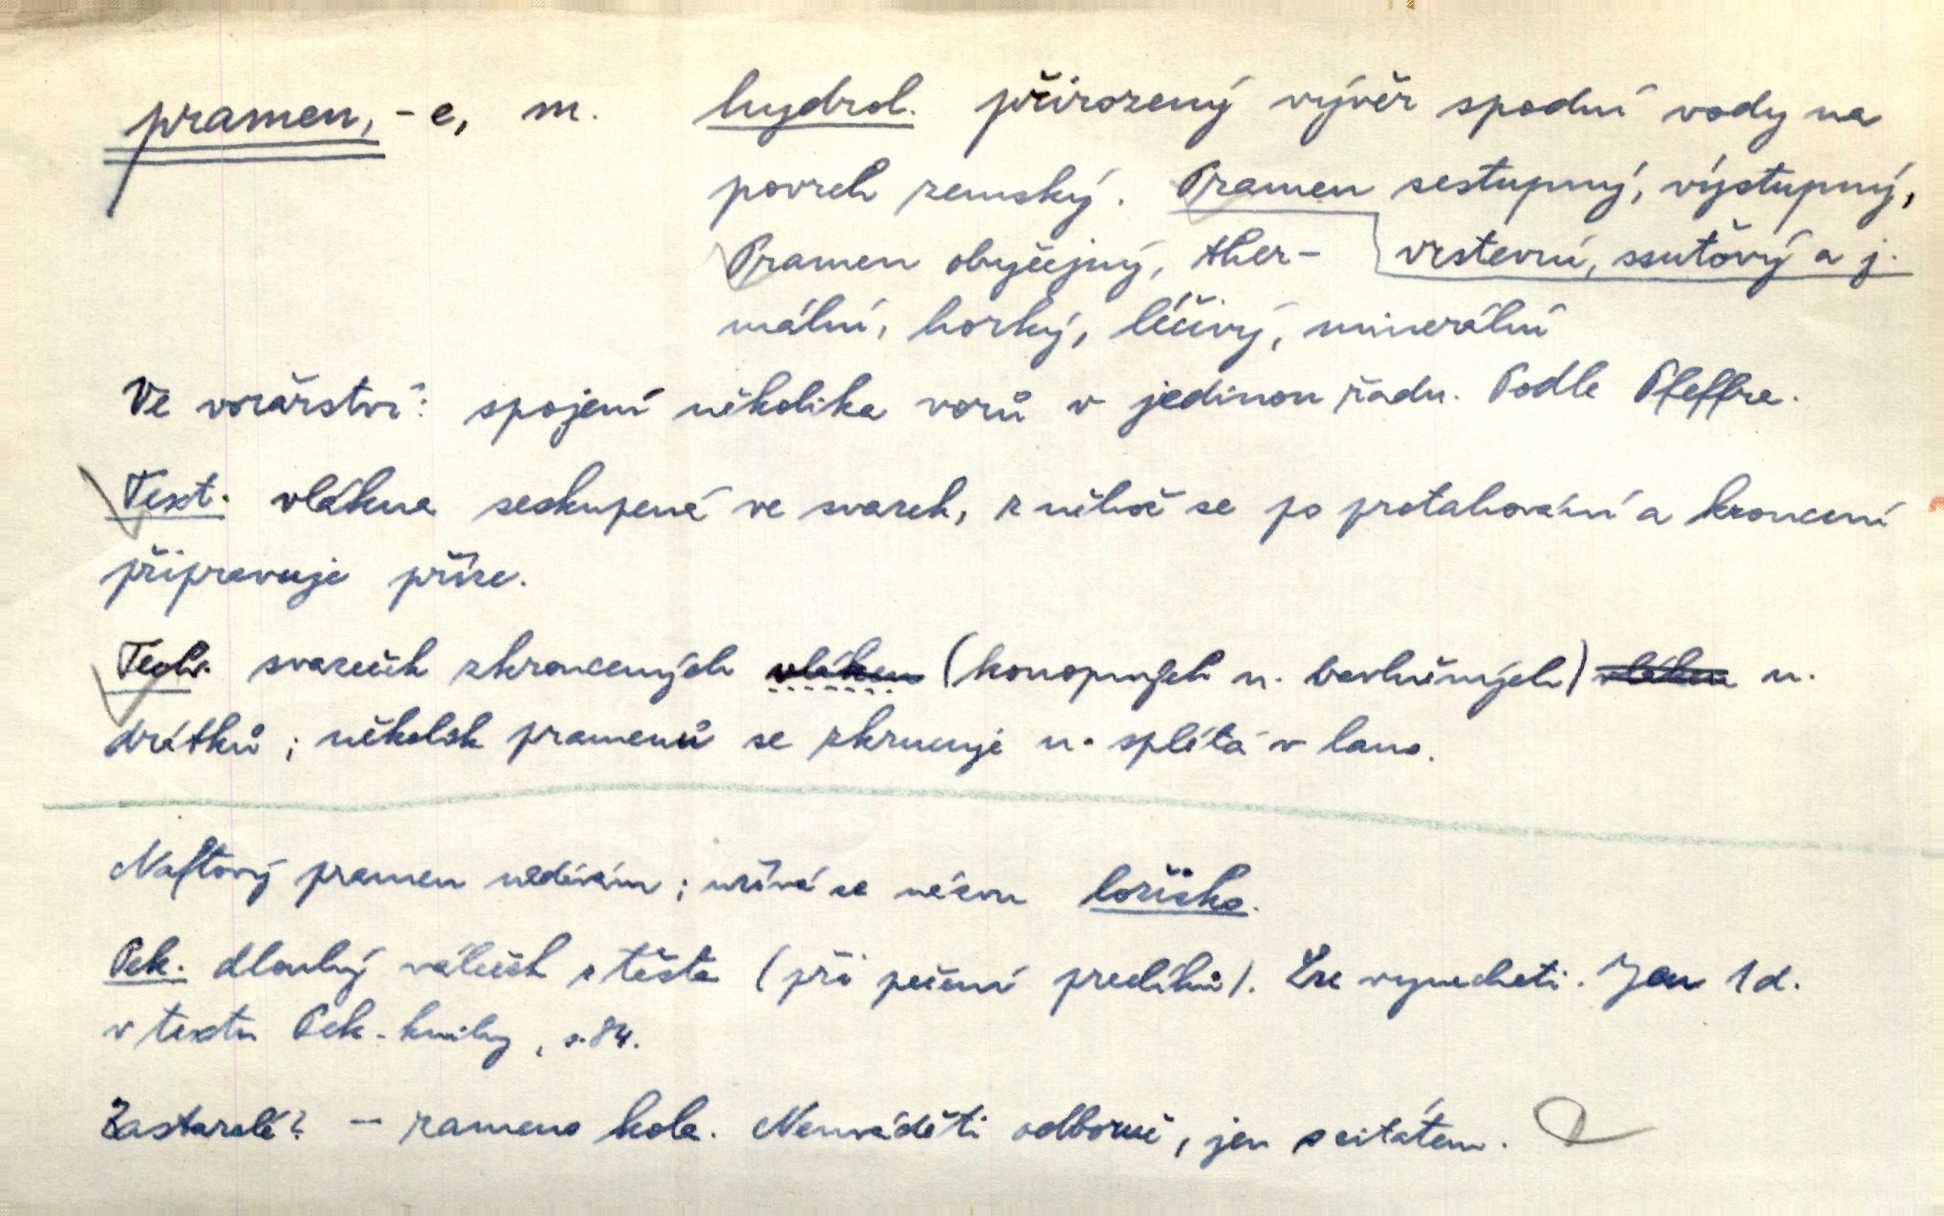 pramen, -e, m. hydrol. přirozený vývěr spodní vody na
povrch zemský. Pramen sestupný, výstupný,
vrstevní, ssuťový a j.
Pramen obyčejný, ther-
mální, horký, léčivý, minerální
Ve vorařství: spojení několika vorů v jedinou řadu. Podle Pfeffra.
Text. vlákna seskupená ve svazek, z něhož se po protahování a kroucení
připravuje příze.
Techn. svazeček zkroucených vláken (konopných n. bavlněných) vláken n.
drátků; několik pramenů se zkrucuje n. splétá v lano.
Naftový pramen nedávám; užívá se názvu ložisko.
Pek. dlouhý váleček z těsta (při pečení preclíků). Lze vynechati. Jen 1 d.
v textu Pek. knihy, s. 84.
Zastaralé? — rameno kola. Neuváděti odborně, jen s citátem.